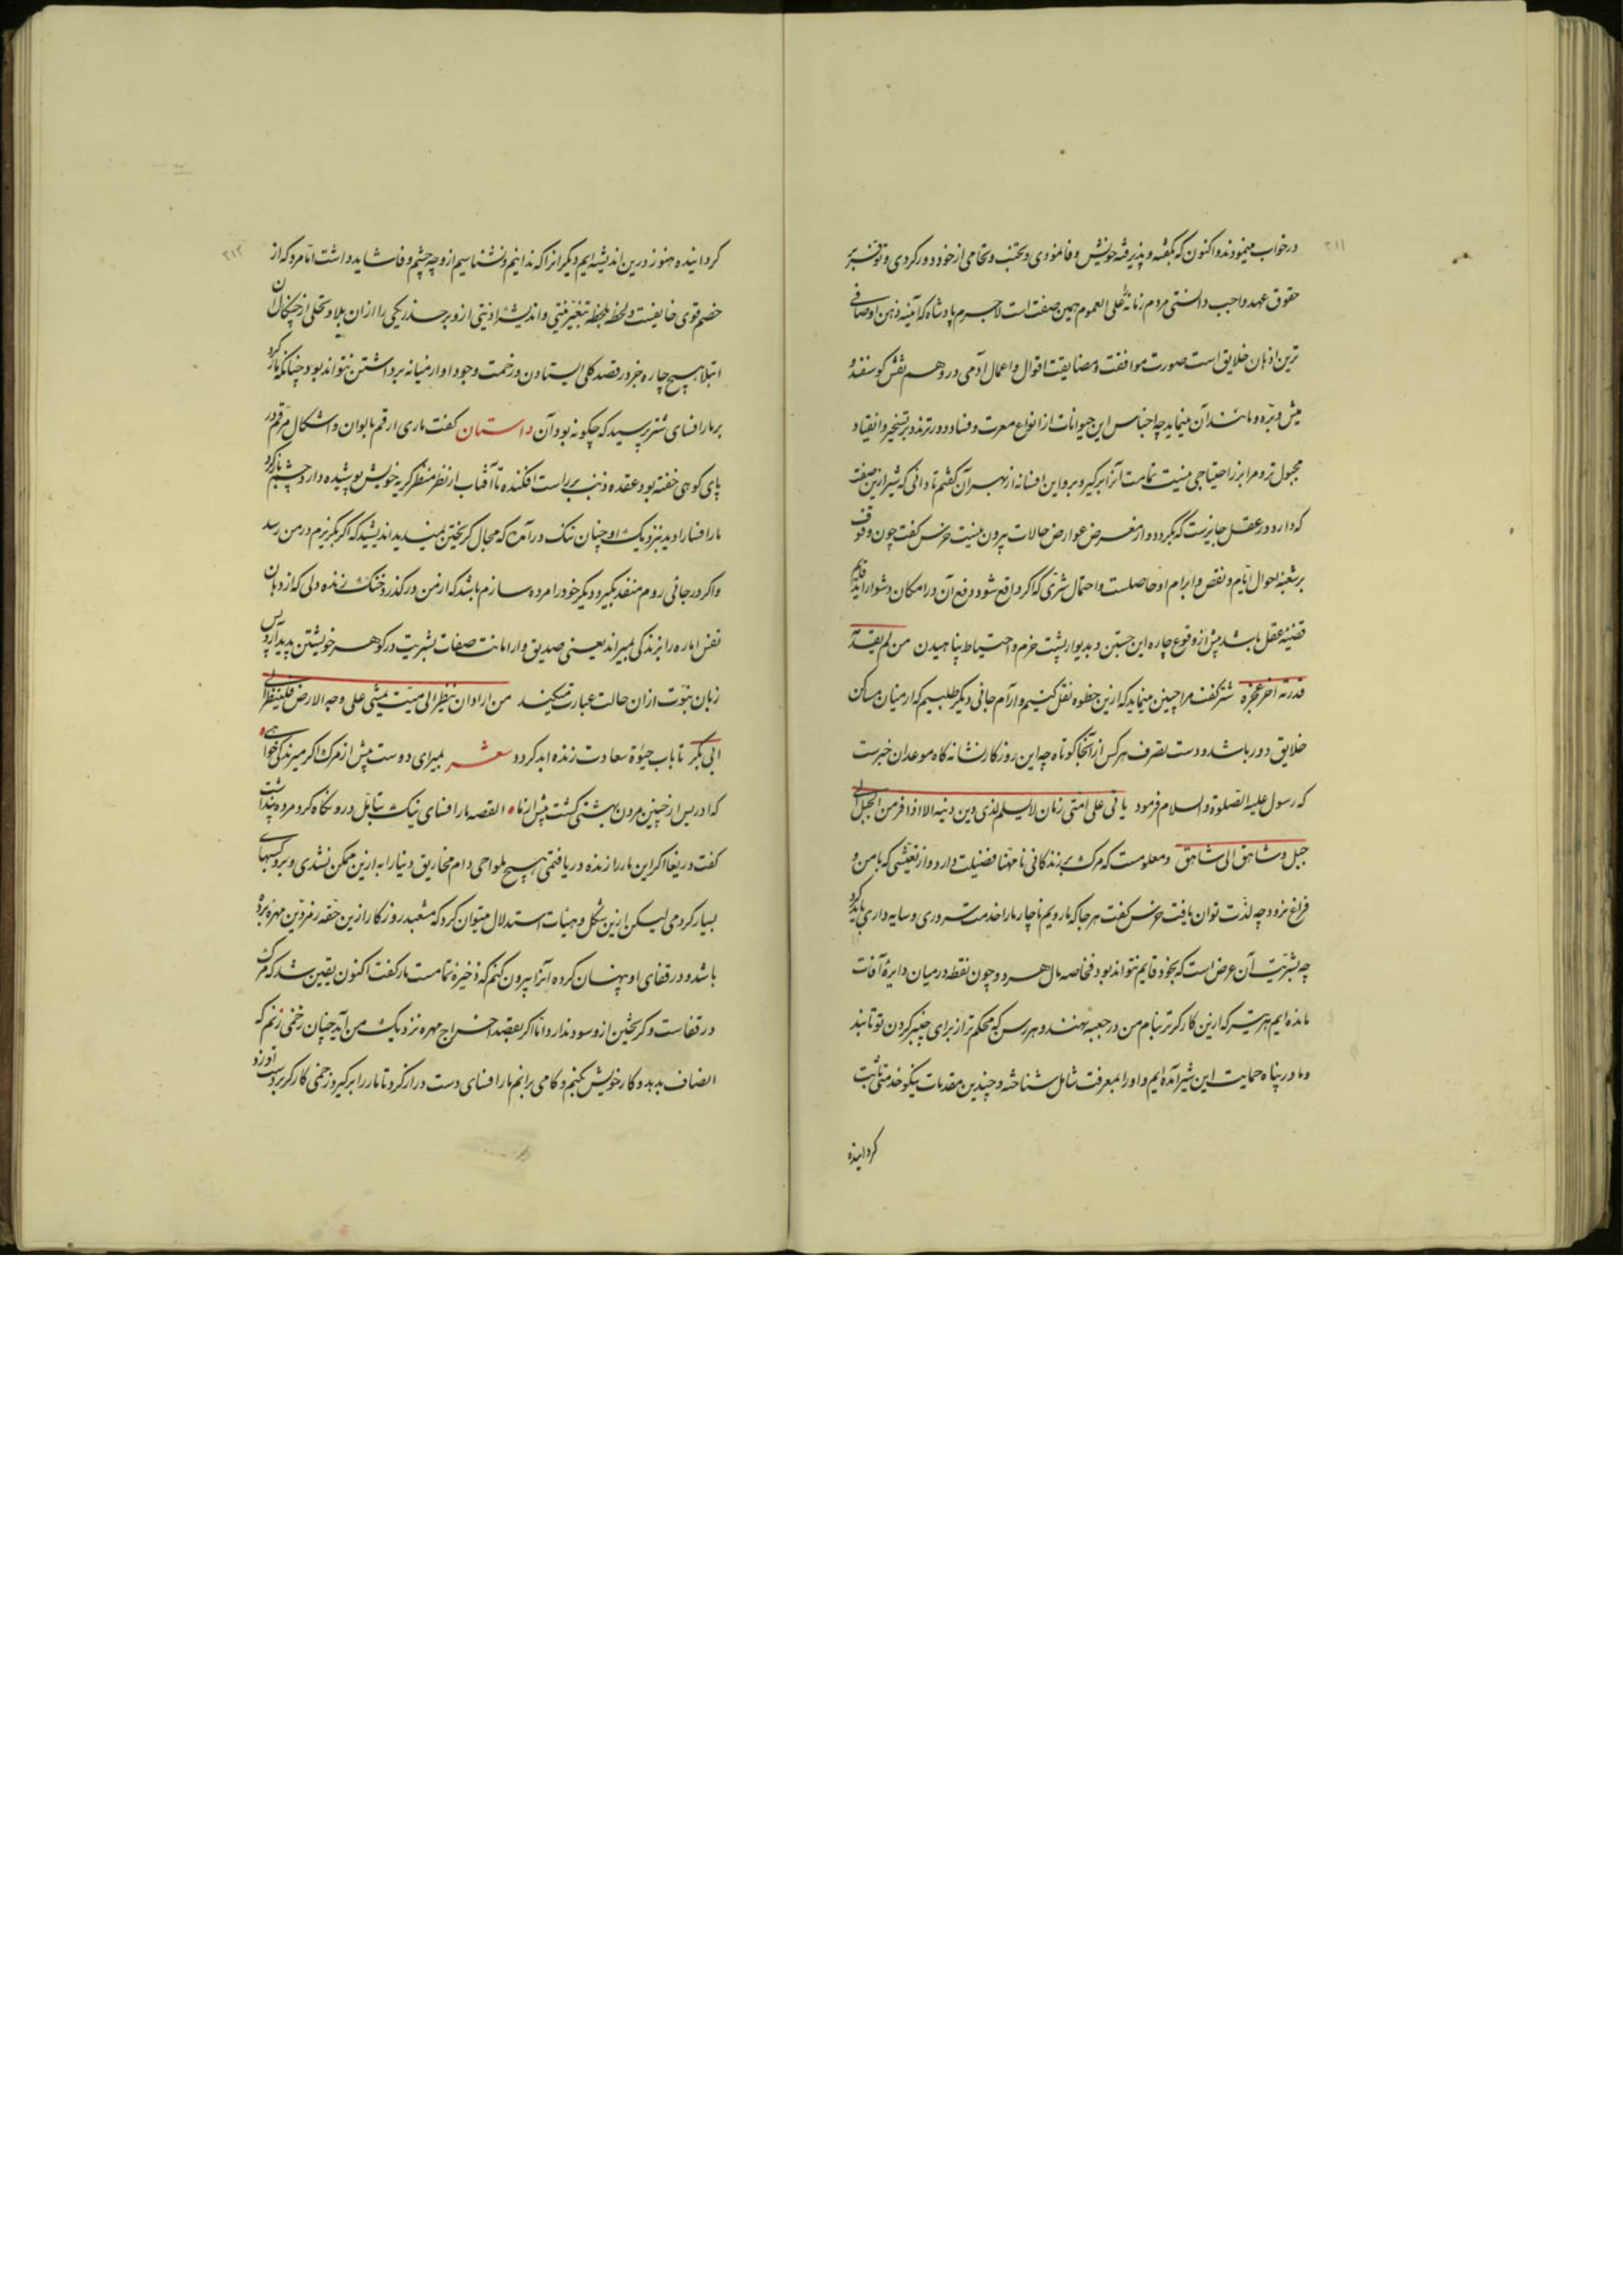 ۲۱۱
درخواب مینمودند و اکنون که بگفته و پذیرفته خویش وفا نمودی و تجنب و تحامی از خود دور کردی و توفر بر
حقوق عهد واجب دانستی مردم زمانه علی العموم همین صفت است لاجرم پادشاه که آئینه ذهن او صافی
ترین اذهان خلایق است صورت موافقت و مضایقت اقوال و اعمال آدمی درو هم نقش گوسفند و
میش و بره و مانند آن مینماید چه اجناس این حیوانات از انواع معرت و فساد دورترند و بر تسخیر و انقیاد
مجبول‌تر و مرا بزر احتیاجی نیست تمامت آنرا برگیر و برو این افسانه از بهر آن گفتم تا دانی که شیر ازین صفت
که دارد در عقل جایزست که بگردد و از معرض عوارض حالات بیرون نیست خرس گفت چون وقوف
بر شعبذه احوال ایام و نقض و ابرام او حاصلست و احتمال شری که اگر واقع شود دفع آن در امکان دشوار آید
قضیه عقل باشد پیش از وقوع چاره این جستن و بدیوار پشت حزم و احتیاط پناهیدن من لم یقد
قدرته اخر عجزه شتر گفت مرا چنین مینماید که ازین خطوه نقل کنیم و آرام جائی دیگر طلبیم که از میان مساکن
خلایق دور باشد و دست تصرف هر کس از آنجا کوتاه چه این روزگار نشانه گاه موعد آن خبرست
که رسول علیه الصلوة و السلام فرمود یاتی علی امتی زمان لایسلم لذی دین دینه الا اذا فر من الجبل الی
جبل و شاهق الی شاهق و معلومست که مرگ بر زندگانی نامهنا فضیلت دارد و از تعیشی که با من و
فراغ نرود چه لذت توان یافت خرس گفت هر جا که ما رویم ناچار ما را خدمت سروری و سایه داری باید کرد
چه بشریت آن عرض است که بخود قایم نتواند بود فخاصه ما هر دو چون نقطه در میان دایره آفات
مانده ایم هر تیر که ازین کارگرتر بنام من در جعبه نهند و هر رسن که محکم‌تر از برای چنبر گردن تو تابند
و ما در پناه حمایت این شیر آمده ایم و او را بمعرفت شامل شناخته و چندین مقدمات نیکو خدمتی ثابت
گردانیده
۲۱۲
گردانیده هنوز درین اندیشه ایم دیگر انرا که ندانیم و نشناسیم ازو چه چشم وفا شاید داشت اما مرد که از
خصم قوی خایفست و لحظه بلحظه تغییر نیتی و اندیشه اذیتی ازو بر حذر یکی را از آن بلا و تخلی از چنگال آن
ابتلا هیچ چاره جز در قصد کلی ایستادن و زحمت وجود او از میانه برداشتن نتواند بود چنانکه مار کرد
بر مار افسای شتر پرسید که چگونه بود آن داستان گفت ماری ارقم بالوان و اشکال مرقم در
پای کوهی خفته بود عقده ذنب بر راست افکنده تا آفتاب از نظر منظر کریه خویش پوشیده دارد چشم باز کرد
مار افسا را دید بنزدیک او چنان تنگ درآمد که مجال گریختن نمیدید اندیشید که اگر بگریزم در من رسد
و اگر در جائی روم منفذ بگیرد دیگر خود را مرده سازم باشد که از من درگذرد خنک زنده دلی که از دهان
نفس اماره را بزندگی بمیراند یعنی صدیق وار امانت صفات بشریت در گوهر خویشتن پدید آرد پس
زبان نبوت از آن حالت عبارت میکند من اراد ان ینظر الی میت یمشی علی وجه الارض فلینظر الی
ابی بکر تا باب حیوة سعادت زنده ابد گردد شعر بمیر ای دوست پیش از مرگ اگر می زندگی خواهی
که ادریس از چنین مردن بهشتی گشت پیش از ما القصه مار افسای نیک بتامل درو نگاه کرد مرده پنداشت
گفت دریغا اگر این مار را زنده دریافتمی هیچ ملواحی دام مخاریق دنیا را به ازین ممکن نشدی و برو کسبهای
بسیار کردمی لیکن ازین شکل و هیئات استدلال میتوان کرد که مشعبد روزگار ازین حقه زمردین مهره برده
باشد و در قفای او پنهان کرده آنرا بیرون کنم که ذخیره تمامست مار گفت اکنون یقین شد که مرگ
در قفاست و گریختن ازو سود ندارد اما اگر بقصد اخراج مهره نزدیک من آید چنان زخمی زنم که
انصاف بدهد و کار خویش کنم و کامی برانم مار افسای دست دراز کرد تا مار را برگیرد زخمی کارگر بر دست او زد